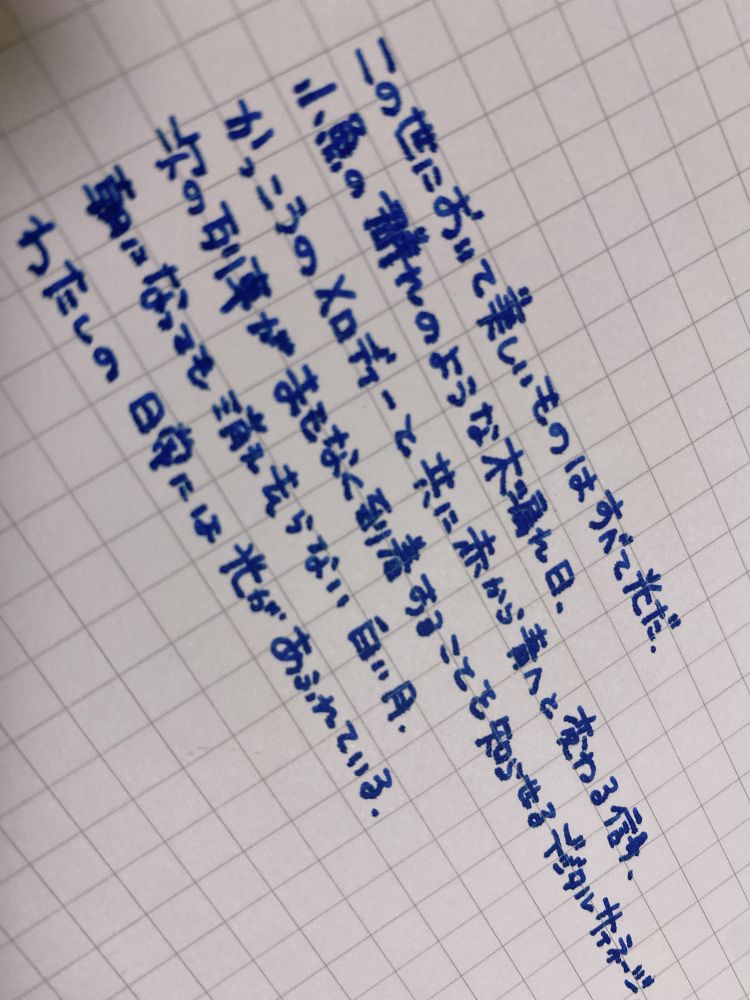 この世において美しいものはすべて光だ.
小魚の群れのような木漏れ日.
かっこうのメロディーと共に赤から青へと変わる信号.
次の列車がまもなく到着することを知らせるデジタルサイネージ
朝になっても消え去らない白い月.
わたしの日常には光があふれている.